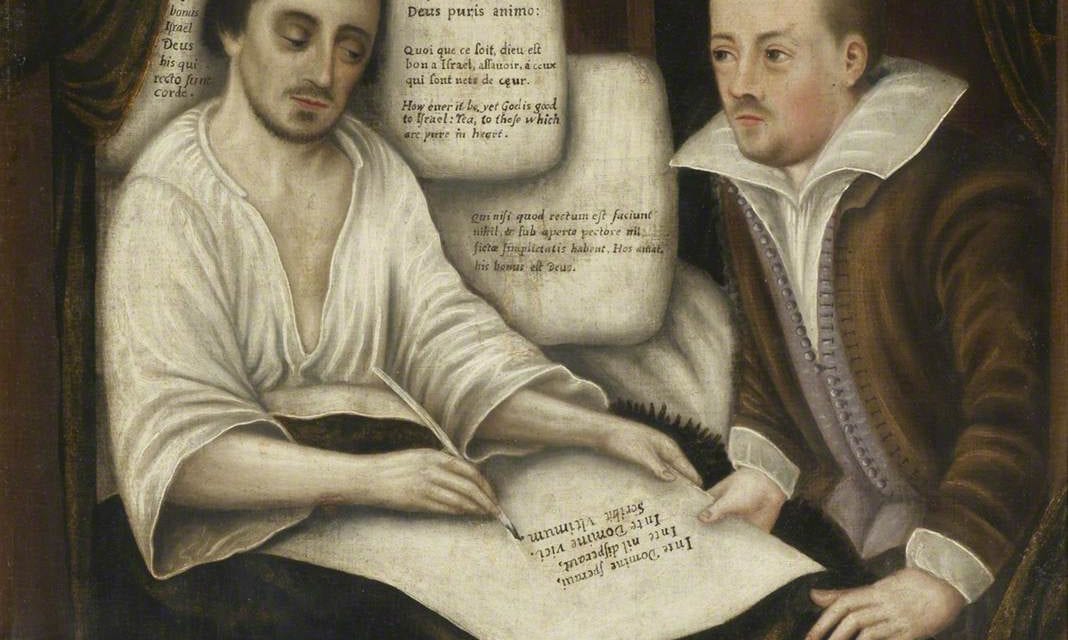 bonus
Israël
Deus
his qui
recto sunt
corde.
Deus puris animo:
Quoi que ce soit, dieu est
bon a Israel, assavoir, a ceux
qui sont nets de cœur.
How euer it be, yet God is good
to Israel: Yea, to those which
are pure in heart.
Qui nisi quod rectum est faciunt
nihil, & sub aperto pectore nil
fictæ simplicitatis habent. Hos amat,
his bonus est Deus.
In te Domine speraui,
In te nil disperaui,
In te Domine vici.
Scribit vltimum.